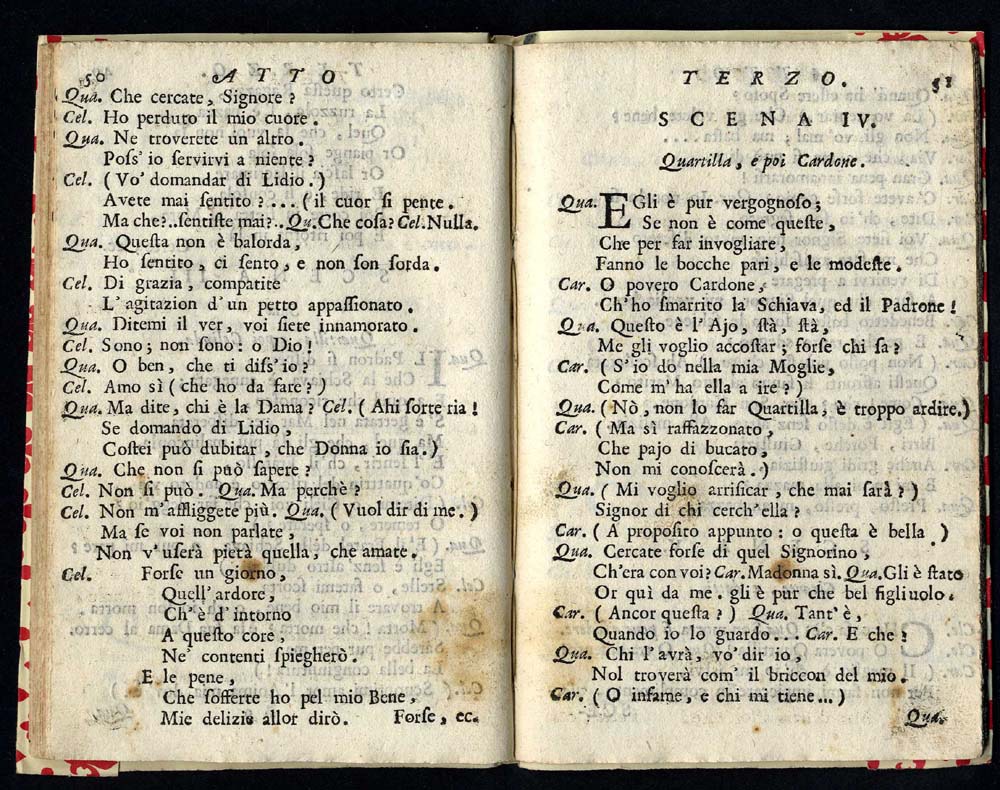 50 ATTO
Qua. Che cercate, Signore?
Cel. Ho perduto il mio cuore.
Qua. Ne troverete un altro.
Poſs' io ſervirvi a niente?
Cel. (Vo' domandar di Lidio.)
Avete mai ſentito?... (il cuor ſi pente.
Ma che?..ſentiſte mai?.. Qu.Che coſa? Cel.Nulla.
Qua. Queſta non è balorda,
Ho ſentito, ci ſento, e non ſon ſorda.
Cel. Di grazia, compatite
L' agitazion d' un petto appaſſionato.
Qua. Ditemi il ver, voi ſiete innamorato.
Cel. Sono; non ſono: o Dio!
Qua. O ben, che ti diſs' io?
Cel. Amo sì (che ho da fare?)
Qua. Ma dite, chi è la Dama? Cel. (Ahi ſorte ria!
Se domando di Lidio,
Coſtei può dubitar, che Donna io ſia.)
Qua. Che non ſi può ſapere?
Cel. Non ſi può. Qua. Ma perchè?
Cel. Non m'affliggete più. Qua. (Vuol dir di me.)
Ma ſe voi non parlate,
Non v' uſerà pietà quella, che amate.
Cel. Forſe un giorno,
Quell' ardore,
Ch' è d' intorno
A queſto core,
Ne' contenti ſpiegherò.
E le pene,
Che ſofferte ho pel mio Bene,
Mie delizie allor dirò. Forſe, ec.
TERZO. 51
SCENA IV.
Quartilla, e poi Cardone.
Qua. EGli è pur vergognoſo;
Se non è come queſte,
Che per far invogliare,
Fanno le bocche pari, e le modeſte.
Car. O povero Cardone,
Ch'ho ſmarrito la Schiava, ed il Padrone!
Qua. Queſto è l' Ajo, ſtà, ſtà,
Me gli voglio accoſtar; forſe chi ſa?
Car. (S' io do nella mia Moglie,
Come m' ha ella a ire?)
Qua. (Nò, non lo far Quartilla, è troppo ardire.)
Car. (Ma sì raffazzonato,
Che pajo di bucato,
Non mi conoſcerà.)
Qua. (Mi voglio arriſicar, che mai ſarà?)
Signor di chi cerch'ella?
Car. (A propoſito appunto: o queſta è bella.)
Qua. Cercate forſe di quel Signorino,
Ch'era con voi? Car. Madonna sì. Qua. Gli è ſtato
Or quì da me. gli è pur che bel figliuolo.
Car. (Ancor queſta?) Qua. Tant' è,
Quando io lo guardo... Car. E che?
Qua. Chi l'avrà, vo' dir io,
Nol troverà com' il briccon del mio.
Car. (O infame, e chi mi tiene...)
Qua.